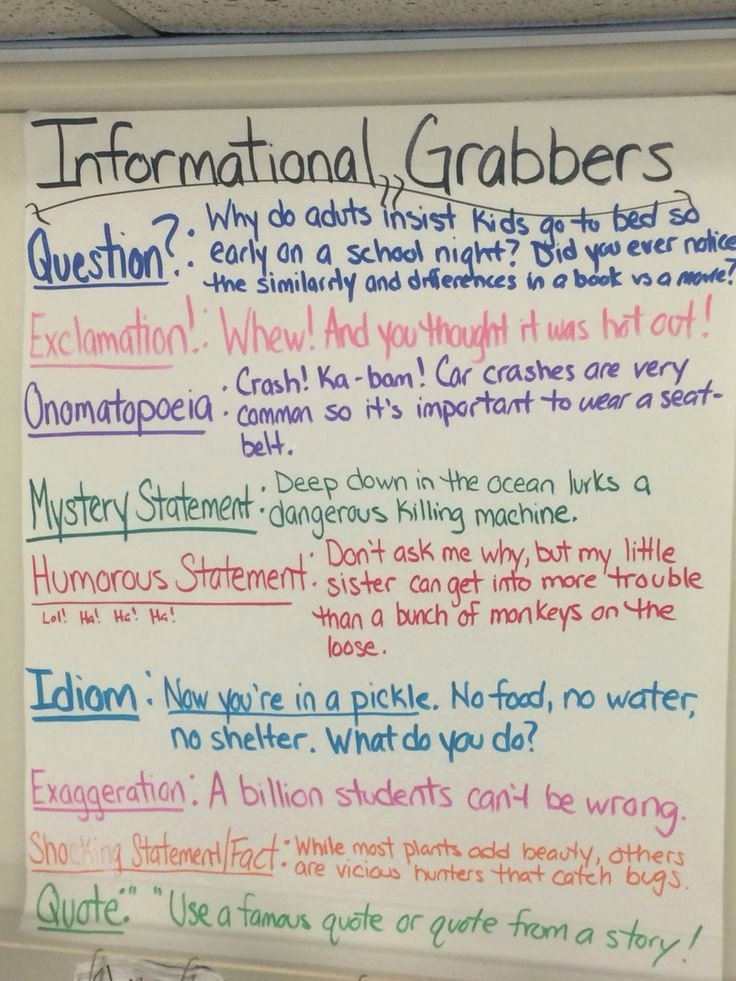 Informational Grabbers
Question?: Why do aduts insist kids go to bed so
early on a school night? Did you ever notice
the similarity and differences in a book vs a movie?
Exclamation!: Whew! And you thought it was hot out!
Onomatopoeia: Crash! Ka-bam! Car crashes are very
common so it's important to wear a seat-
belt.
Mystery Statement: Deep down in the ocean lurks a
dangerous killing machine.
Humorous Statement: Don't ask me why, but my little
sister can get into more trouble
Lol! Ha! Ha! Ha!
than a bunch of monkeys on the
loose.
Idiom: Now you're in a pickle. No food, no water,
no shelter. What do you do?
Exaggeration: A billion students can't be wrong.
Shocking Statement/Fact: While most plants add beauty, others
are vicious hunters that catch bugs.
Quote:"" "Use a famous quote or quote from a story!